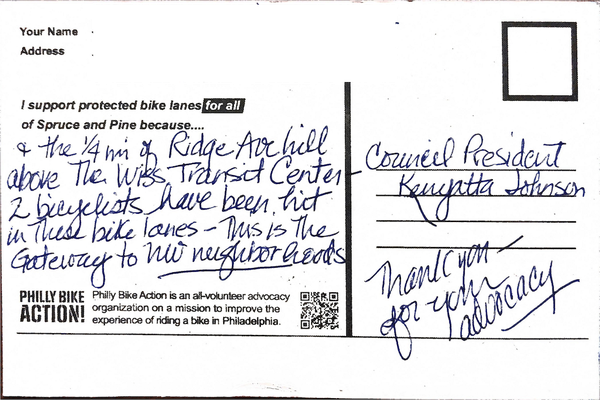 Your Name
Address
I support protected bike lanes for all
of Spruce and Pine because....
& the 1/4 mi of Ridge Ave hill
above The Wiss Transit Center -
2 bicyclists have been hit
in These bike lanes - This is The
Gateway to NW neighborhoods
Council President
Kenyatta Johnson
Thank you -
for your
advocacy
PHILLY BIKE
ACTION!
Philly Bike Action is an all-volunteer advocacy
organization on a mission to improve the
experience of riding a bike in Philadelphia.